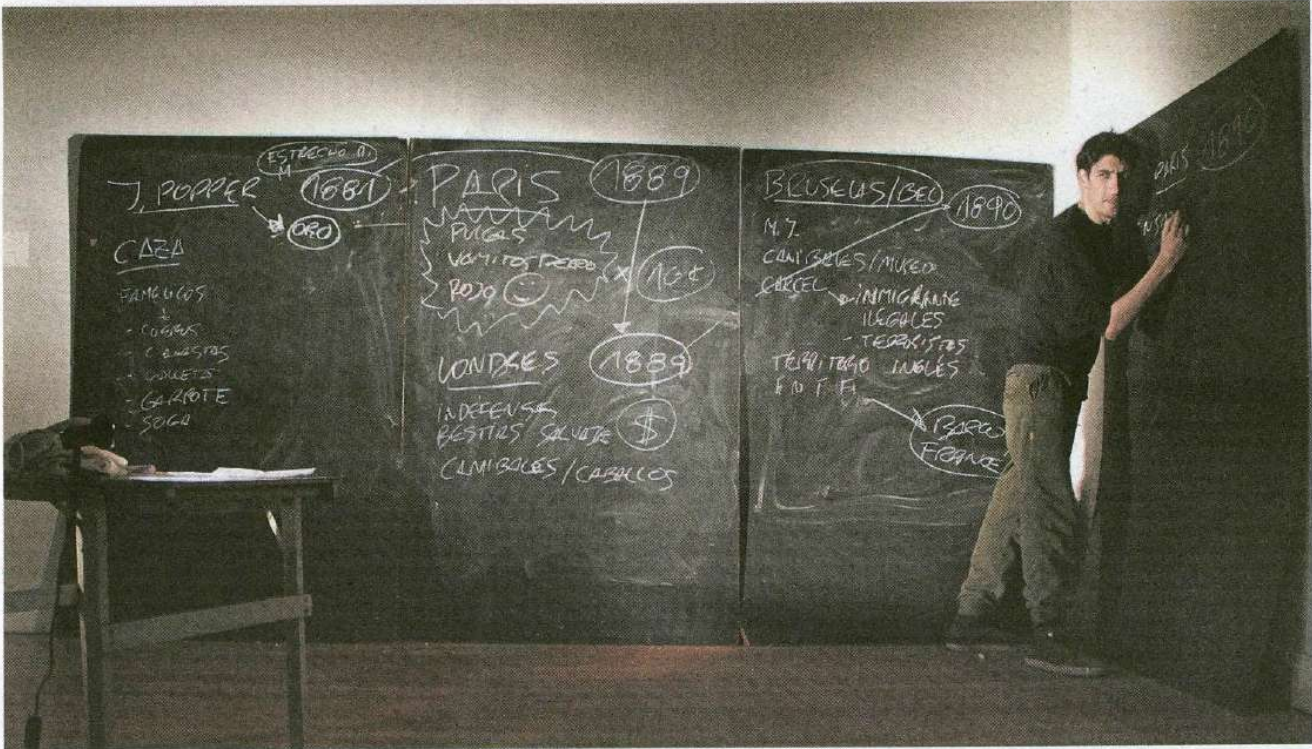 ESTRECHO D.
M
J. POPPER
1881
ORO
CAZA
FAMELICOS
- CANASTAS
- GARROTE
- SOGA
PARIS
1889
PULGAS
VOMITOS
ROJO
LONDRES
1889
INDEFENSOS
BESTIAS SALVAJE
$
CANIBALES/CABALLOS
BRUSELAS/BEL
1890
M. J.
CANIBALES/MUSEO
CARCEL
- INMIGRANTE
ILEGALES
- TERRORISTAS
TERRITORIO INGLÉS
EN T. F.
BARCO
FRANCE
PARIS
1890